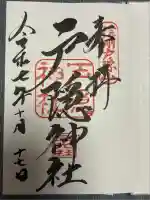 奉拝
戸隠神社
令和七年十月十七日